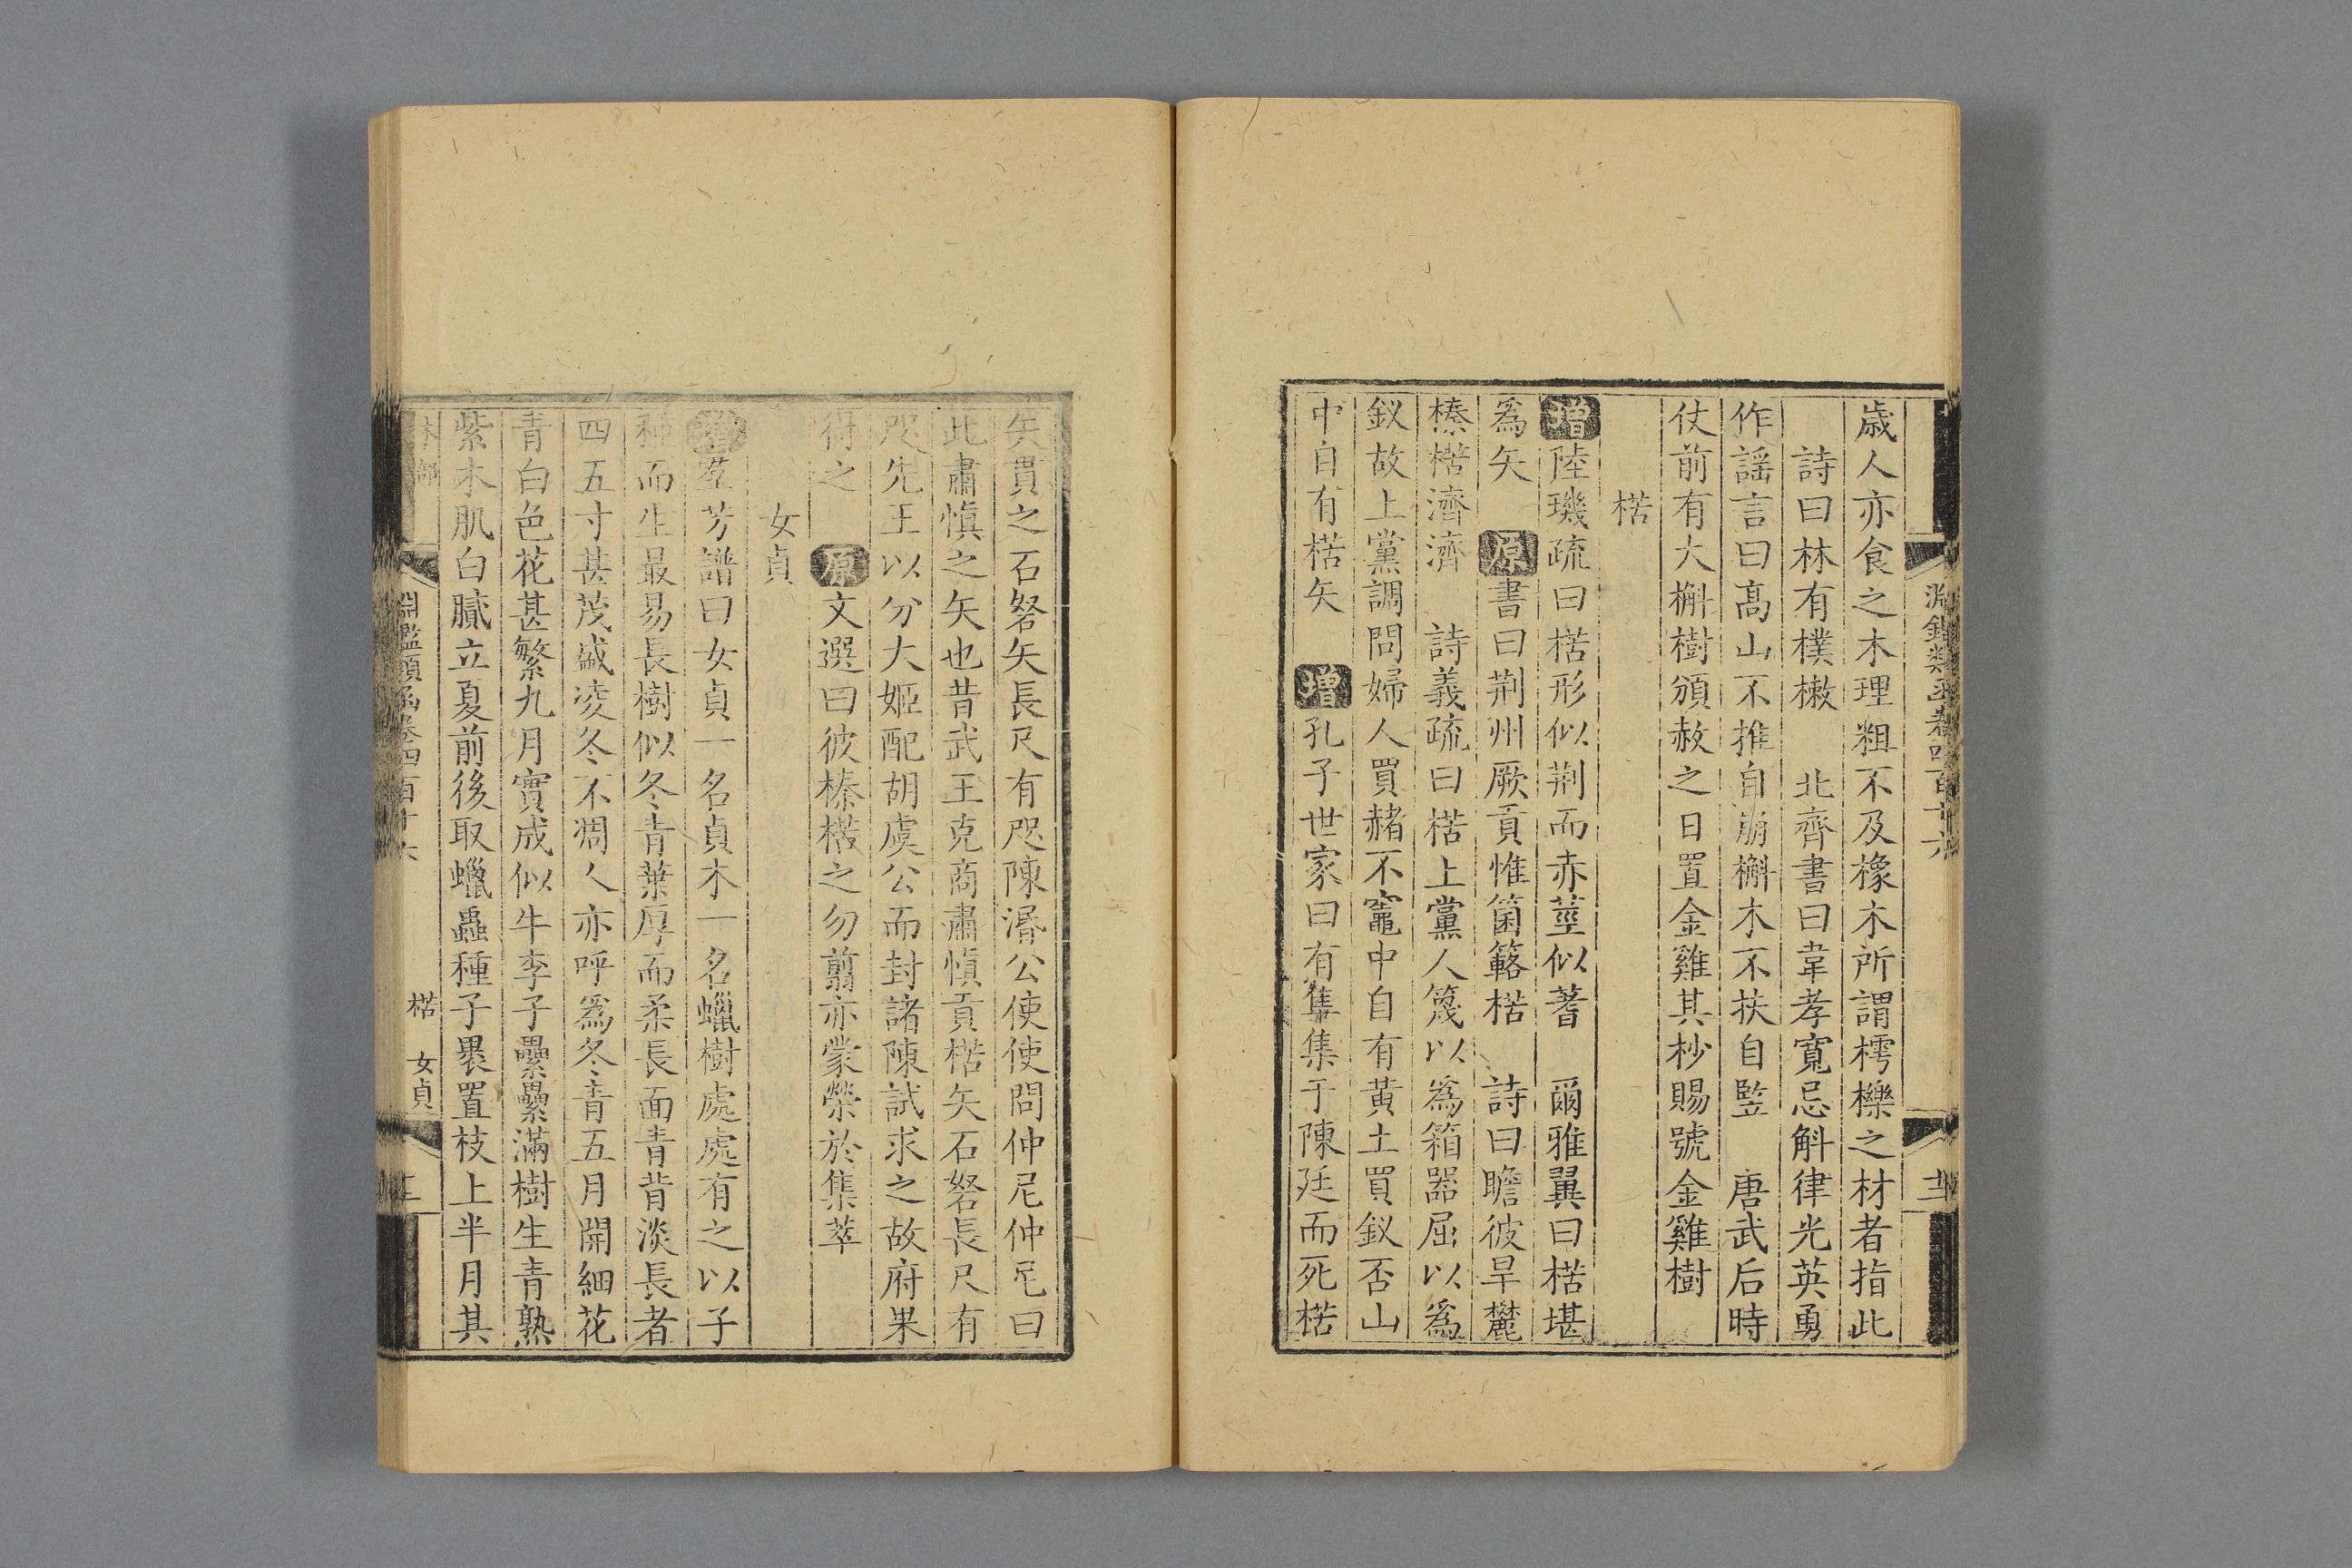 歲人亦食之木理粗不及橡木所謂樗櫟之材者指此
詩曰林有樸樕　北齊書曰韋孝寬忌斛律光英勇
作謡言曰髙山不推自崩槲木不扶自竪　唐武后時
仗前有大槲樹頒赦之日置金雞其杪賜號金雞樹
楛
增陸璣疏曰楛形似荆而赤莖似蓍　爾雅翼曰楛堪
爲矢　原書曰荆州厥貢惟箘簵楛　詩曰瞻彼旱麓
榛楛濟濟　詩義疏曰楛上黨人篾以爲箱器屈以爲
釵故上黨調問婦人買赭不竈中自有黃土買釵否山
中自有楛矢　增孔子世家曰有隼集于陳廷而死楛
矢貫之石砮矢長尺有咫陳湣公使使問仲尼仲尼曰
此肅慎之矢也昔武王克商肅慎貢楛矢石砮長尺有
咫先王以分大姬配胡虞公而封諸陳試求之故府果
得之　原文選曰彼榛楛之勿翦亦蒙榮於集萃
女貞
增羣芳譜曰女貞一名貞木一名蠟樹處處有之以子
種而生最易長樹似冬青葉厚而柔長面青背淡長者
四五寸甚茂盛凌冬不凋人亦呼爲冬青五月開細花
青白色花甚繁九月實成似牛李子纍纍滿樹生青熟
紫木肌白膩立夏前後取蠟蟲種子褁置枝上半月其
淵鑑類函卷四百十六
楛　女貞